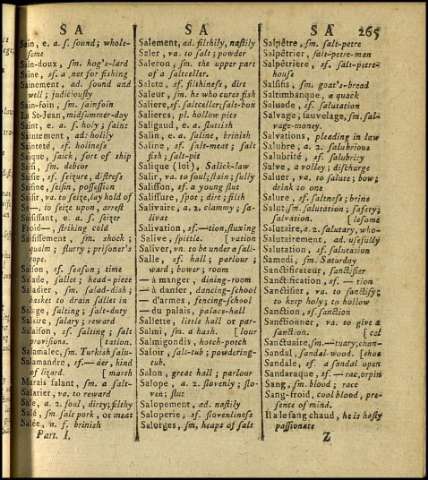 SA
SA
SA
265
Sain, e. a. ſ. ſound; whole-
ſome
Sain-doux, ſm. hog's-lard
Saine, ſf. a net for fiſhing
Sainement, ad. ſound and
well; judiciouſly
Sain-foin, ſm. ſainfoin
La St-Jean, midſummer-day
Saint, e. a. ſ. holy; ſaint
Saintement, ad. holily
Sainteté, ſf. holineſs
Saique, ſaick, ſort of ſhip
Saiſi, ſm. debtor
Saiſie, ſf. ſeizure, diſtreſs
Saiſine, ſeiſin, poſſeſſion
Saiſir, va. to ſeize, lay hold of
S— to ſeize upon, arreſt
Saiſiſſant, e. a. ſ. ſeizer
Froid—, ſtriking cold
Saiſiſſement, ſm. ſhock;
qualm; ſlurry; priſoner's
rope
Saiſon, ſf. ſeaſon; time
Salade, ſallet; head-piece
Saladier, ſm. ſalad-diſh;
baſket to drain ſallet in
Salage, ſalting; ſalt-duty
Salaire, ſalary; reward
Salaiſon, ſf. ſalting; ſalt
proviſions. [tation.
Salamalec, ſm. Turkiſh ſalu-
Salamandre, ſf.—der, kind
of lizard. [marſh
Marais ſalant, ſm. a ſalt-
Salarier, va. to reward
Sale, a. 2. foul, dirty; filthy
Salé, ſm. ſalt pork, or meat
Salée, a. f. briniſh
Part. I.
Salement, ad. filthily, naſtily
Saler, va. to ſalt; powder
Saleron, ſm. the upper part
of a ſaltceller.
Saleté, ſf. filthineſs, dirt
Saleur, ſm. he who cures fiſh
Saliere, ſf. ſaltceller; ſalt-box
Salieres, pl. hollow pits
Saligaud, e. a. ſluttiſh
Salin, e. a. ſaline, briniſh
Saline, ſf. ſalt-meat; ſalt
fiſh; ſalt-pit
Salique (loi), Salick-law
Salir, va. to foul; ſtain; ſully
Saliſſon, ſf. a young ſlut
Saliſſure, ſpot; dirt; filth
Salivaire, a. 2. clammy; ſa-
livat
Salivation, ſf.—tion, fluxing
Salive, ſpittle. [vation
Saliver, vn. to be under a ſali-
Salle, ſf. hall; parlour;
ward; bower; room
— à manger, dining-room
— à danſer, dancing-ſchool
— d'armes, fencing-ſchool
— du palais, palace-hall
Sallette, little hall or par-
Salmi, ſm. a haſh. [lour
Salmigondis, hotch-potch
Saloir, ſalt-tub; powdering-
tub.
Salon, great hall; parlour
Salope, a. 2. ſlovenly; ſlo-
ven; ſlut
Salopement, ad. naſtily
Saloperie, ſf. ſlovenlineſs
Salorges, ſm. heaps of ſalt
Salpêtre, ſm. ſalt-petre
Salpêtrier, ſalt-petre-man
Salpêtriere, ſf. ſalt-petre-
houſe
Salſifis, ſm. goat's-bread
Saltimbanque, a quack
Saluade, ſf. ſalutation
Salvage, ſauvelage, ſm. ſal-
vage-money.
Salvations, pleading in law
Salubre, a. 2. ſalubrious
Salubrité, ſf. ſalubrity
Salve, a volley; diſcharge
Saluer, va. to ſalute; bow;
drink to one
Salure, ſf. ſaltneſs; brine
Salut, ſm. ſalutation; ſafety;
ſalvation. [leſome
Salutaire, a. 2. ſalutary, who-
Salutairement, ad. uſefully
Salutation, ſf. ſalutation
Samedi, ſm. Saturday
Sanctificateur, ſanctifier
Sanctification, ſf. — tion
Sanctifier, va. to ſanctify;
to keep holy; to hollow
Sanction, ſf. ſanction
Sanctionner, va. to give a
ſanction. [cel
Sanctuaire, ſm.—tuary, chan-
Sandal, ſandal-wood. [ſhoe
Sandale, ſf. a ſandal open
Sandaraque, ſf.—rac, orpin
Sang, ſm. blood; race
Sang-froid, cool blood, pre-
ſence of mind.
Il a le ſang chaud, he is haſty
paſſionate
Z